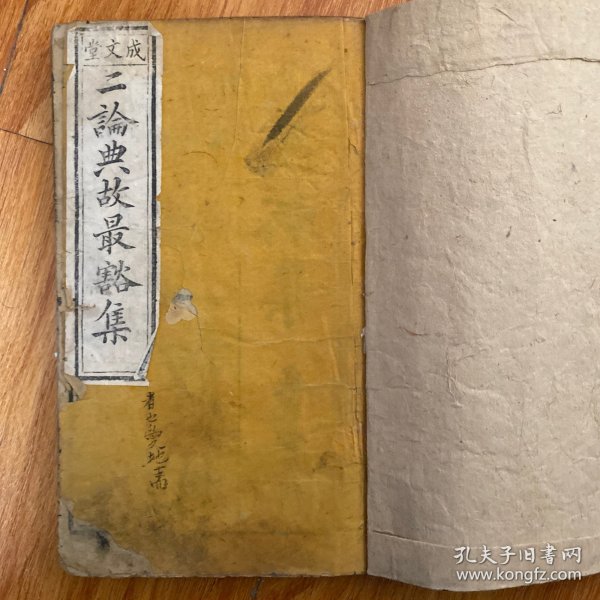 成文堂
二論典故最豁集
孔夫子旧書网
www.kongfz.com